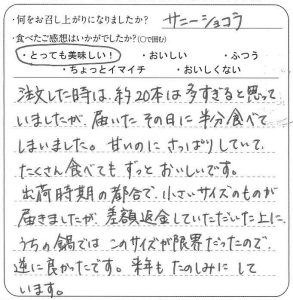 ・何をお召し上がりになりましたか？ サニーショコラ
・食べたご感想はいかがでしたか？(○で囲む)
・とっても美味しい！ ・おいしい ・ふつう
・ちょっとイマイチ ・おいしくない
注文した時は、約20本は多すぎると思って
いましたが、届いたその日に半分食べて
しまいました。甘いのにさっぱりしていて、
たくさん食べてもずっとおいしいです。
出荷時期の都合で、小さいサイズのものが
届きましたが、差額返金していただいた上に、
うちの鍋ではこのサイズが限界だったので、
逆に良かったです。来年もたのしみにして
います。